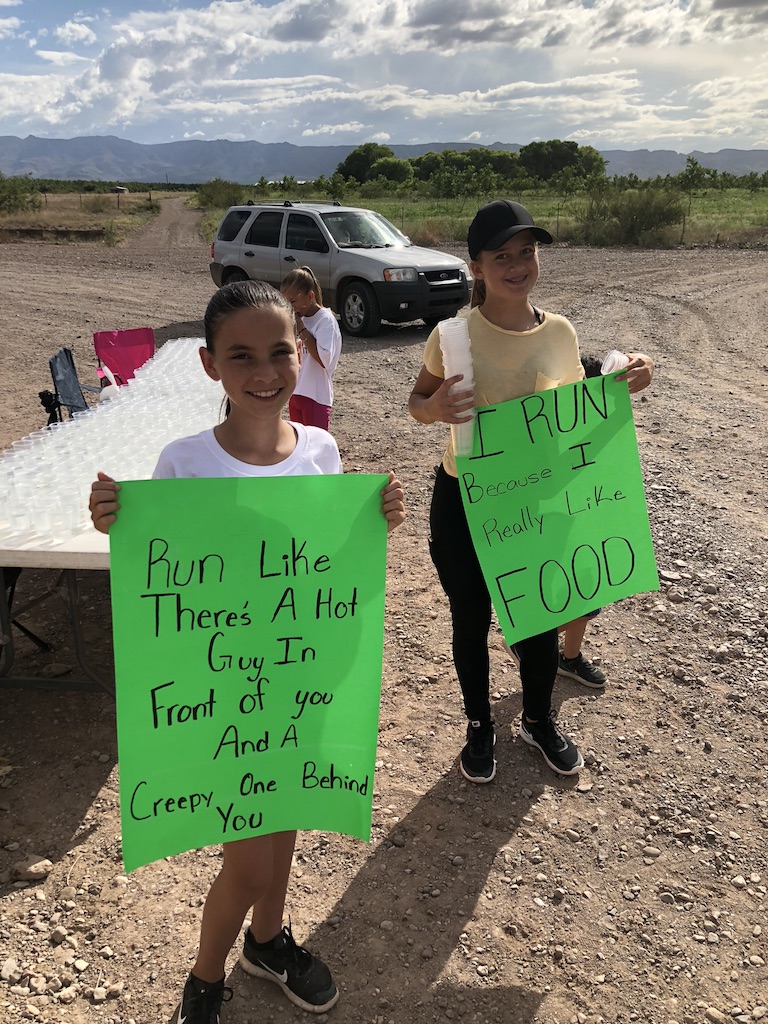 Run Like
There's A Hot
Guy In
Front of you
And A
Creepy One Behind
You
I RUN
Because I
Really Like
FOOD